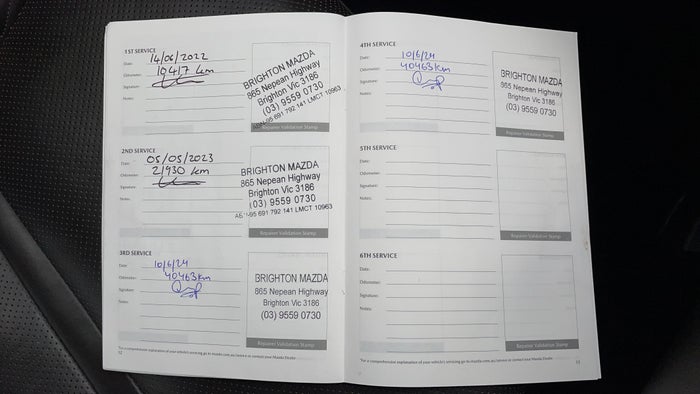 1ST SERVICE
Date: 14/06/2022
Odometer: 10417 km
Signature:
Notes:
BRIGHTON MAZDA
865 Nepean Highway
Brighton Vic 3186
(03) 9559 0730
95 691 792 141 LMCT 10963
Repairer Validation Stamp
2ND SERVICE
Date: 05/05/2023
Odometer: 21930 km
Signature:
Notes:
BRIGHTON MAZDA
865 Nepean Highway
Brighton Vic 3186
(03) 9559 0730
95 691 792 141 LMCT 10963
Repairer Validation Stamp
3RD SERVICE
Date: 10/6/24
Odometer: 40463km
Signature:
Notes:
BRIGHTON MAZDA
865 Nepean Highway
Brighton Vic 3186
(03) 9559 0730
Repairer Validation Stamp
*For a comprehensive explanation of your vehicle's servicing go to mazda.com.au/service or contact your Mazda Dealer
12
4TH SERVICE
Date: 10/6/24
Odometer: 40463km
Signature:
Notes:
BRIGHTON MAZDA
865 Nepean Highway
Brighton Vic 3186
(03) 9559 0730
Repairer Validation Stamp
5TH SERVICE
Date:
Odometer:
Signature:
Notes:
Repairer Validation Stamp
6TH SERVICE
Date:
Odometer:
Signature:
Notes:
Repairer Validation Stamp
*For a comprehensive explanation of your vehicle's servicing go to mazda.com.au/service or contact your Mazda Dealer
13